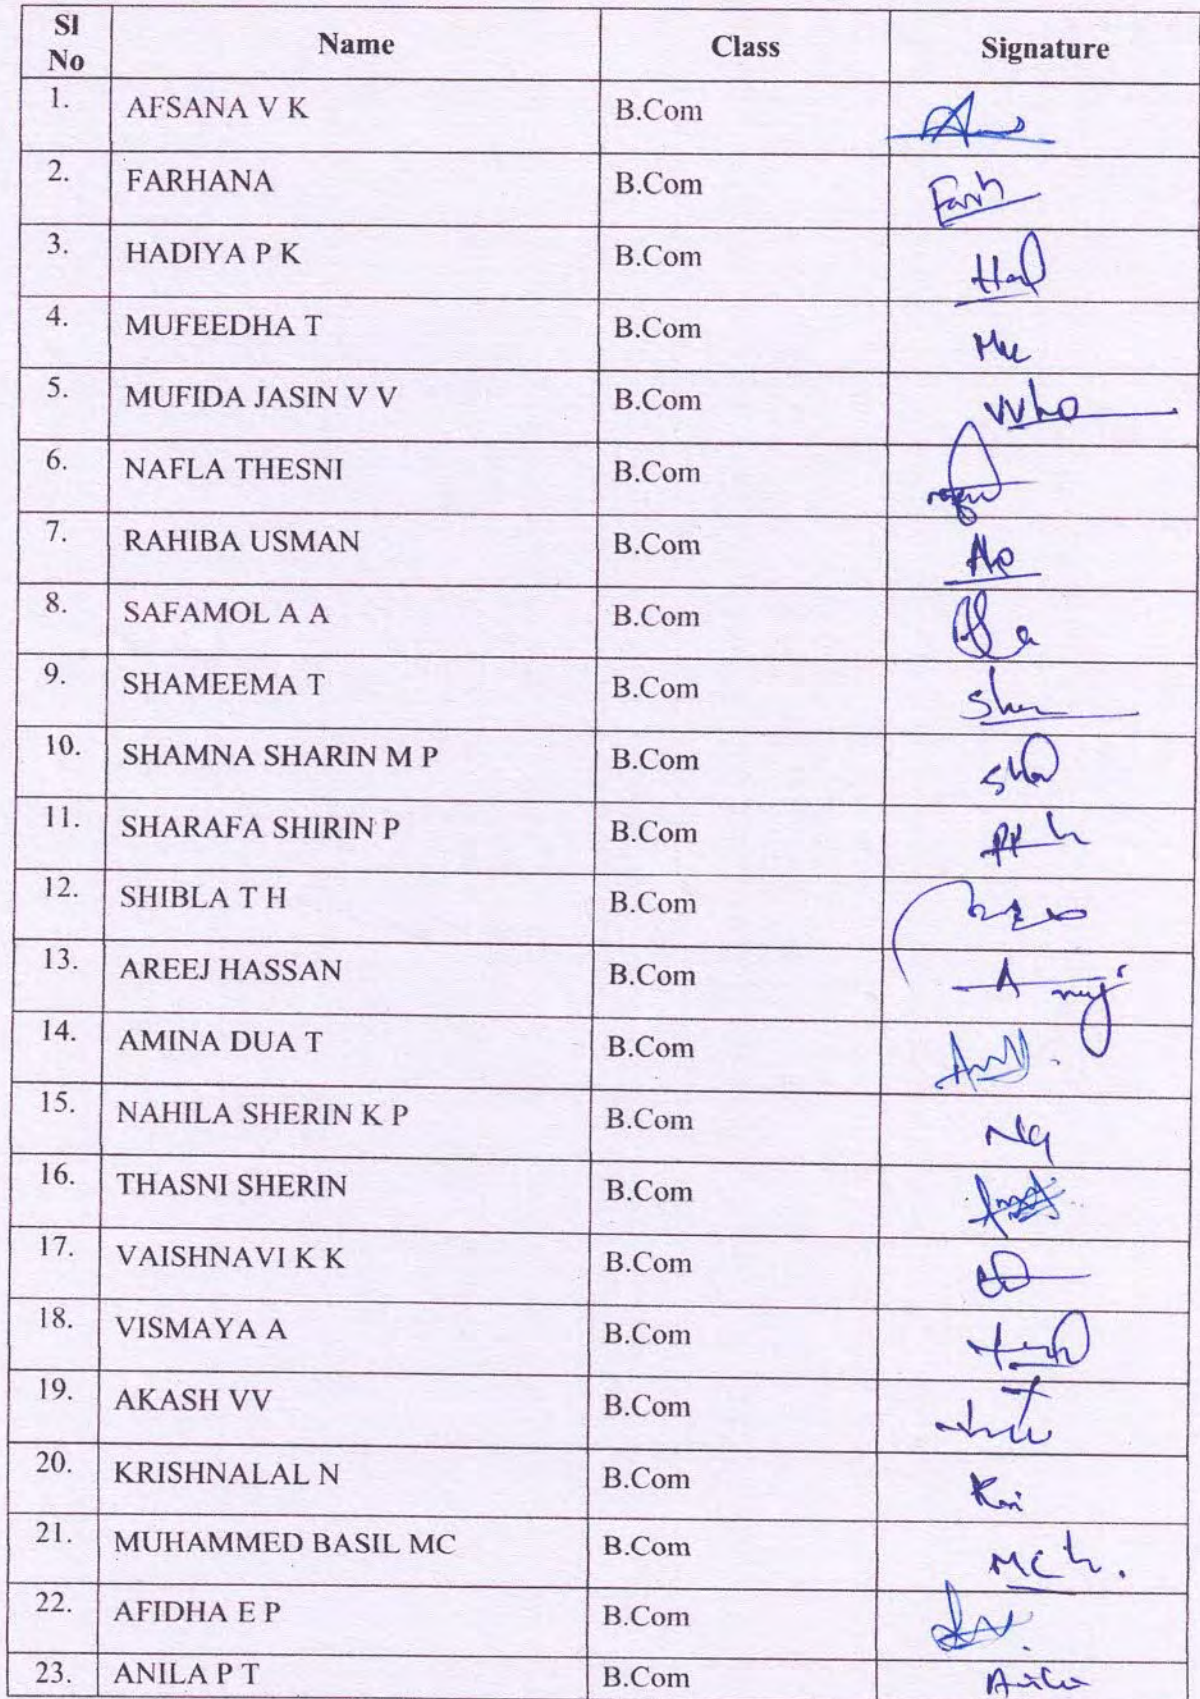 Sl No Name Class Signature
1. AFSANA V K B.Com
2. FARHANA B.Com Farh
3. HADIYA P K B.Com Had
4. MUFEEDHA T B.Com Mu
5. MUFIDA JASIN V V B.Com
6. NAFLA THESNI B.Com
7. RAHIBA USMAN B.Com
8. SAFAMOL A A B.Com
9. SHAMEEMA T B.Com
10. SHAMNA SHARIN M P B.Com
11. SHARAFA SHIRIN P B.Com
12. SHIBLA T H B.Com
13. AREEJ HASSAN B.Com
14. AMINA DUA T B.Com
15. NAHILA SHERIN K P B.Com
16. THASNI SHERIN B.Com
17. VAISHNAVI K K B.Com
18. VISMAYA A B.Com
19. AKASH VV B.Com
20. KRISHNALAL N B.Com
21. MUHAMMED BASIL MC B.Com
22. AFIDHA E P B.Com
23. ANILA P T B.Com